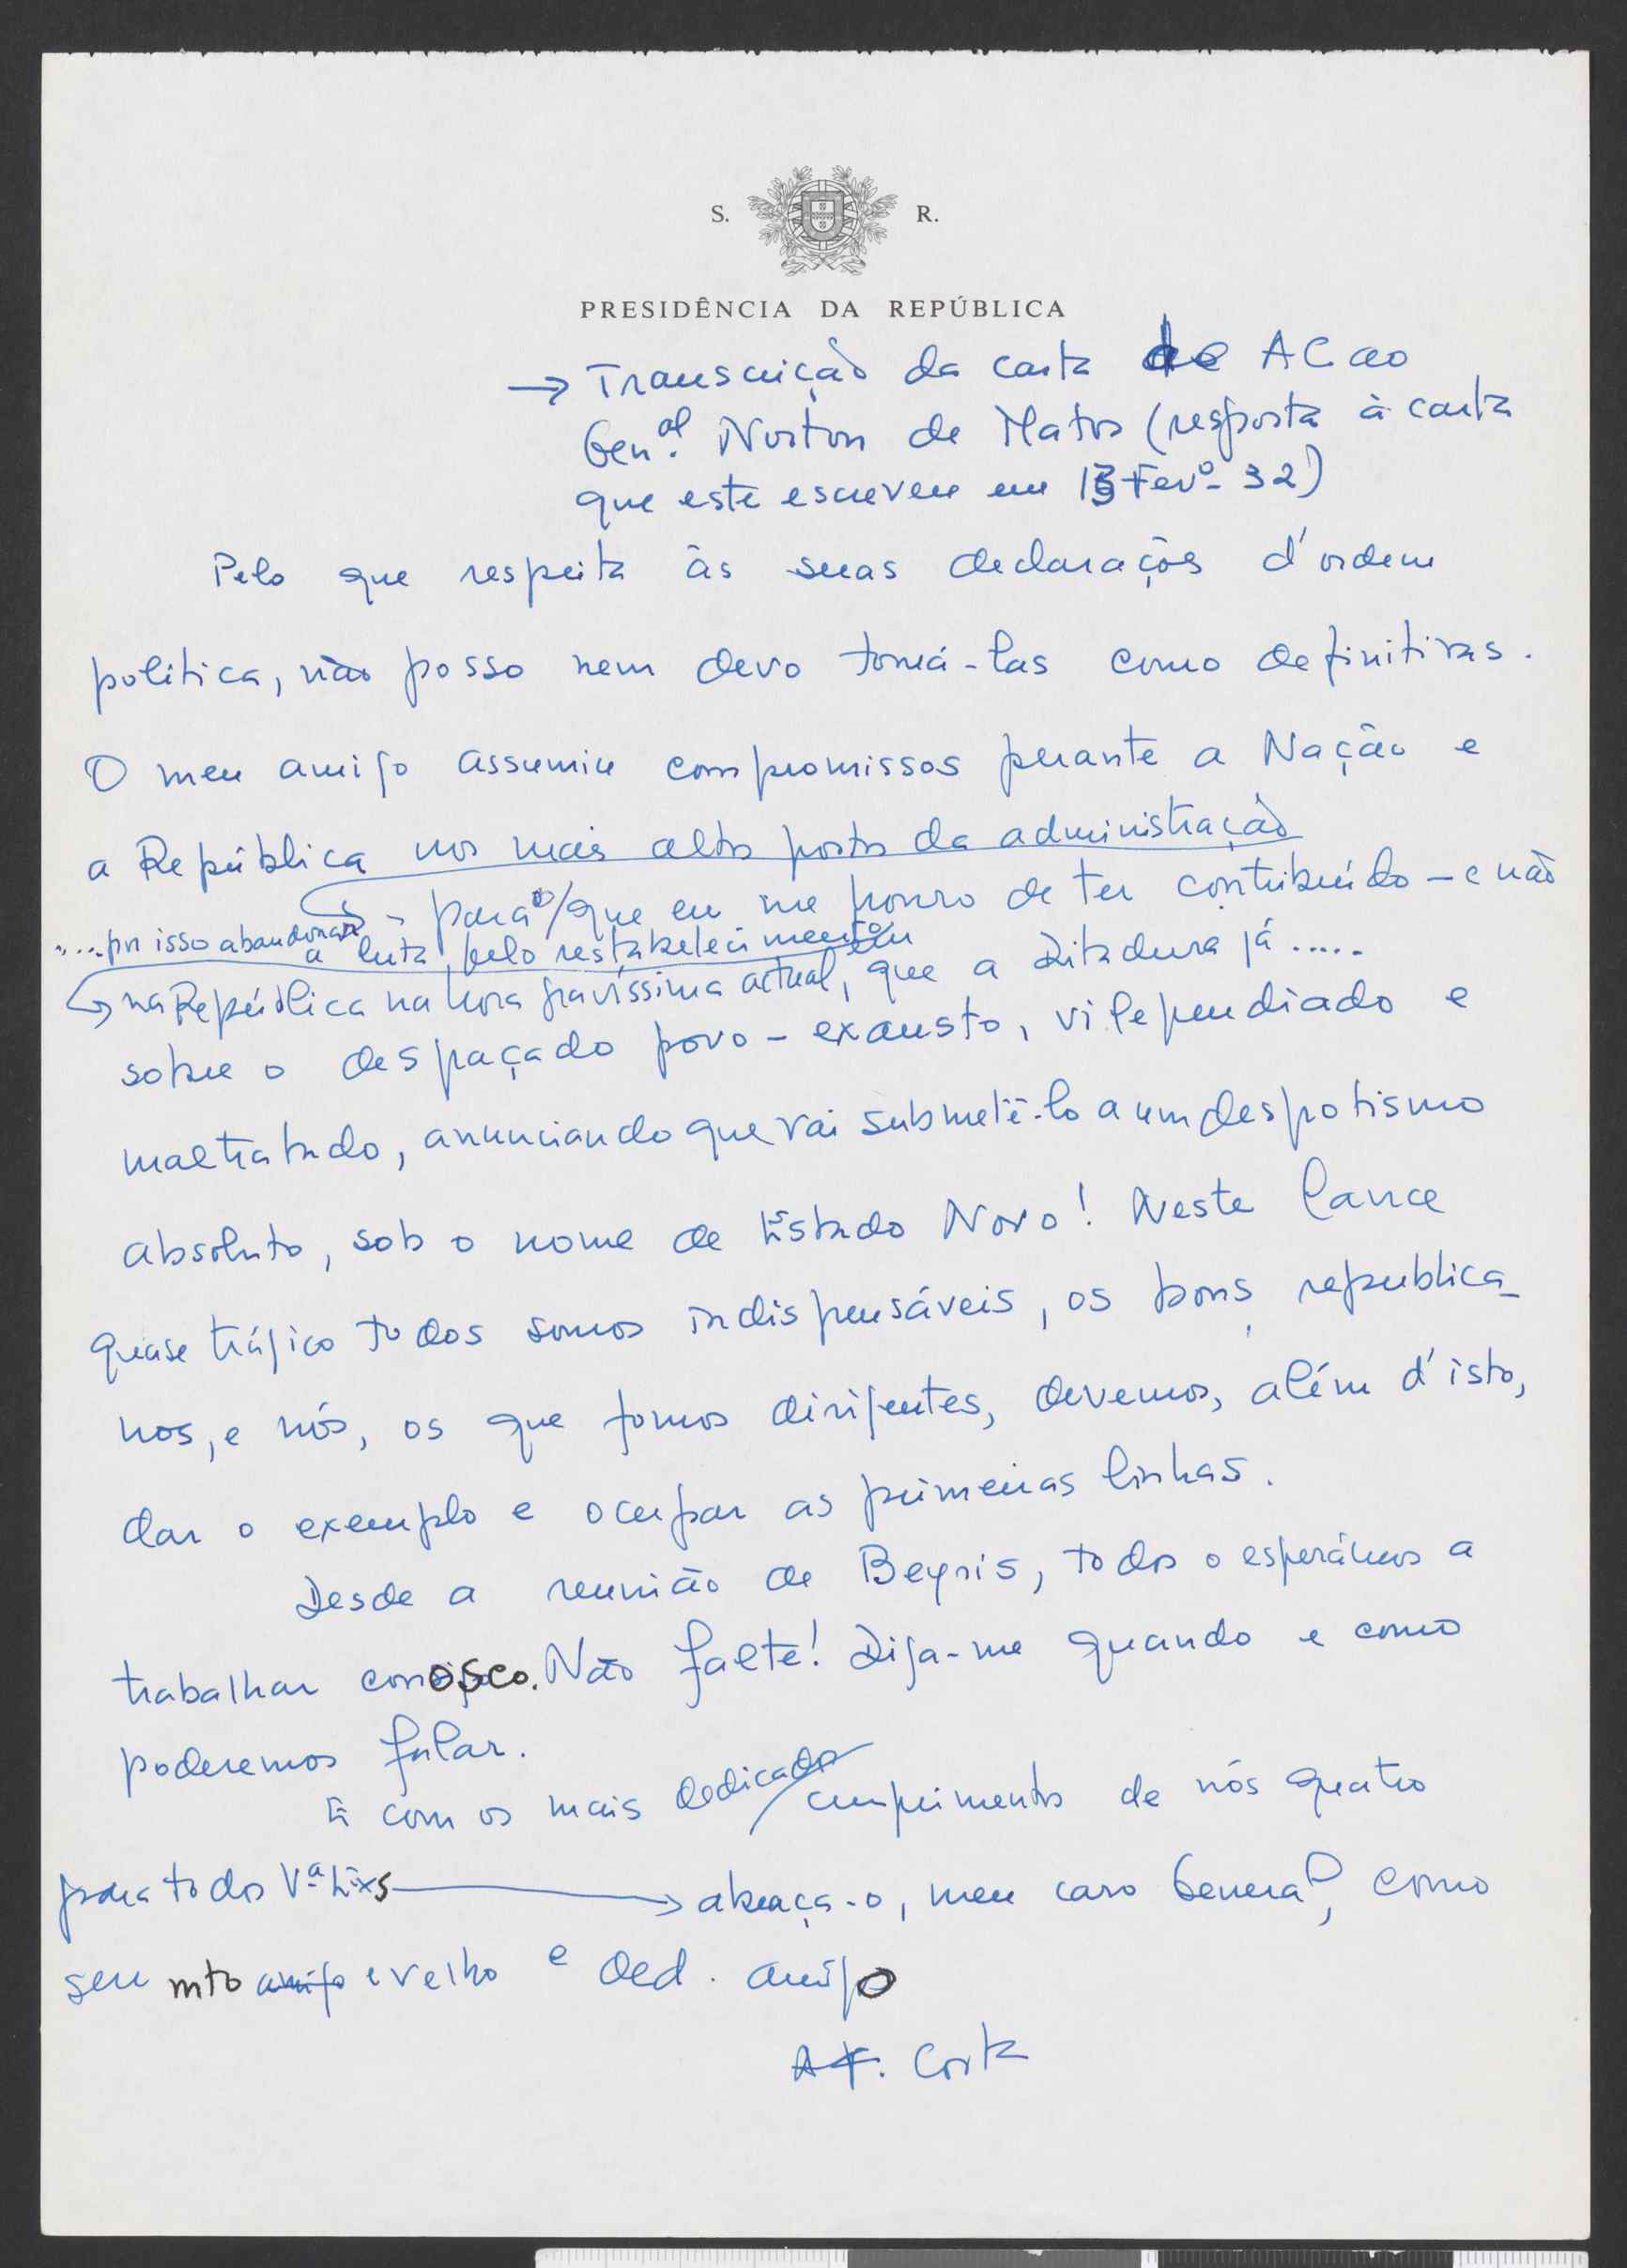 S. R.
PRESIDÊNCIA DA REPÚBLICA
→ Transcrição da carta de AC ao
Gen.al Norton de Matos (resposta à carta
que este escreveu em 13 Fevº 32)
Pelo que respeita às suas declarações d'ordem
política, não posso nem devo tomá-las como definitivas.
O meu amigo assumiu compromissos perante a Nação e
a República nos mais altos postos da administração
- para o que eu me honro de ter contribuído - e não
.... por isso abandonar
a luta pelo restabelecimento
na República na hora gravíssima actual, que a Ditadura já .....
sobre o desgraçado povo - exausto, vilependiado e
maltratado, anunciando que vai submetê-lo a um despotismo
absoluto, sob o nome de Estado Novo! Neste lance
quase trágico todos somos indispensáveis, os bons republica-
nos, e nós, os que fomos dirigentes, devemos, além d'isto,
dar o exemplo e ocupar as primeiras linhas.
Desde a reunião de Beyris, todos o esperámos a
trabalhar conosco. Não falte! Diga-me quando e como
poderemos falar.
E com os mais dedicados cumprimentos de nós quatro
para todos V.ª Exs → abraça-o, meu caro General, como
seu mto amigo e velho e ded. amigo
Af. Costa